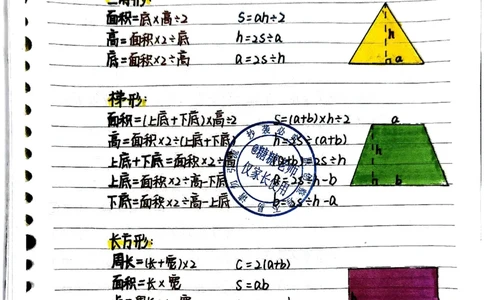 三角形:
面积=底×高÷2 S=ah÷2
高=面积×2÷底 h=2s÷a
底=面积×2÷高 a=2s÷h
h
a
梯形:
面积=(上底+下底)×高÷2 S=(a+b)×h÷2
高=面积×2÷(上底+下底) h=2s÷(a+b)
上底+下底=面积×2÷高 (a+b)=2s÷h
上底=面积×2÷高-下底 a=2s÷h-b
下底=面积×2÷高-上底 b=2s÷h-a
a
h
b
@糖糖老师
仅家长使用
长方形:
周长=(长+宽)×2 C=2(a+b)
面积=长×宽 S=ab